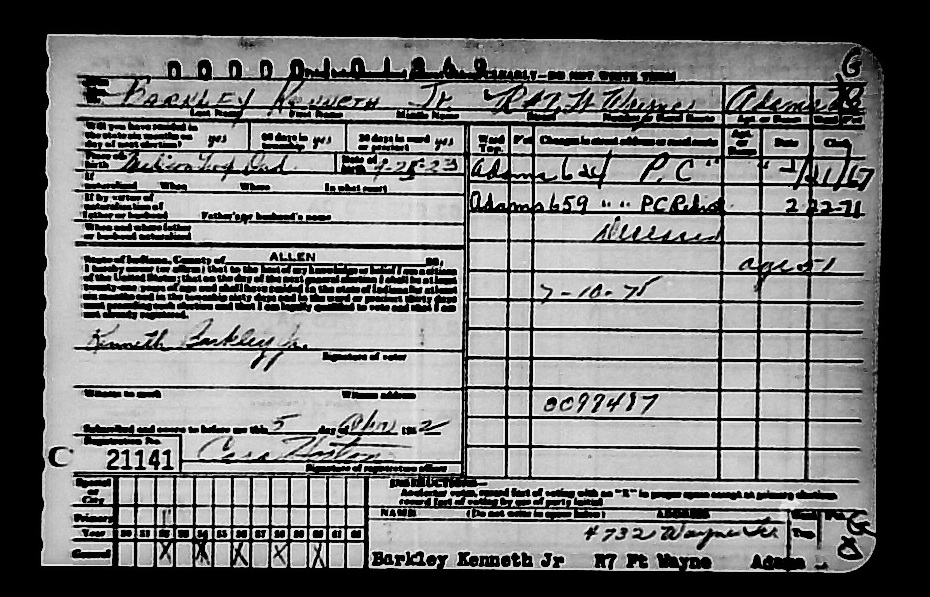 0 0 0 0 0 1 0 1 8 4 9
CLEARLY—DO NOT WRITE THERE
G
BARKLEY KENNETH Jr. R#7 Ft Wayne Adams
Last Name First Name Middle Name Street Number or Rural Route Apt. or Room
Will you have resided in the state six months on day of next election? yes 60 days in township yes 30 days in ward or precinct yes
Ward Twp. P'ct Changes in street address or rural route Apt. or Room Date Clerk
Place of birth Ind. Date of birth 9-25-23
Adams 624 P.C " " 2/21/67
If naturalized When Where In what court
If by virtue of naturalization of father or husband Father's or husband's name
Adams 659 " " PC Redist 2 22-71
When and where father or husband naturalized
Deceased
State of Indiana, County of ALLEN SS.
age 51
I hereby swear (or affirm) that to the best of my knowledge or belief I am a citizen
of the United States; that on the day of the next general election I shall be at least
twenty-one years of age and shall have resided in the state of Indiana for at least
six months and in the township sixty days and in the ward or precinct thirty days
next preceding such election and that I am legally qualified to vote and that I am
not already registered.
7-10-75
Kenneth Barkley Jr.
Signature of voter
Witness to mark Witness address
0097487
Subscribed and sworn to before me this 5 day of
Registration No.
C 21141
Signature of registration officer
Special or City
INSTRUCTIONS—
After each election, record fact of voting with an "X" in proper space except at primary elections
record fact of voting by use of party initial
Primary
NAME (Do not write in space below) ADDRESS
Year 50 51 52 53 54 55 56 57 58 59 60 61 62
4732 Wayne
General X X X X X
Barkley Kenneth Jr R7 Ft Wayne Adams